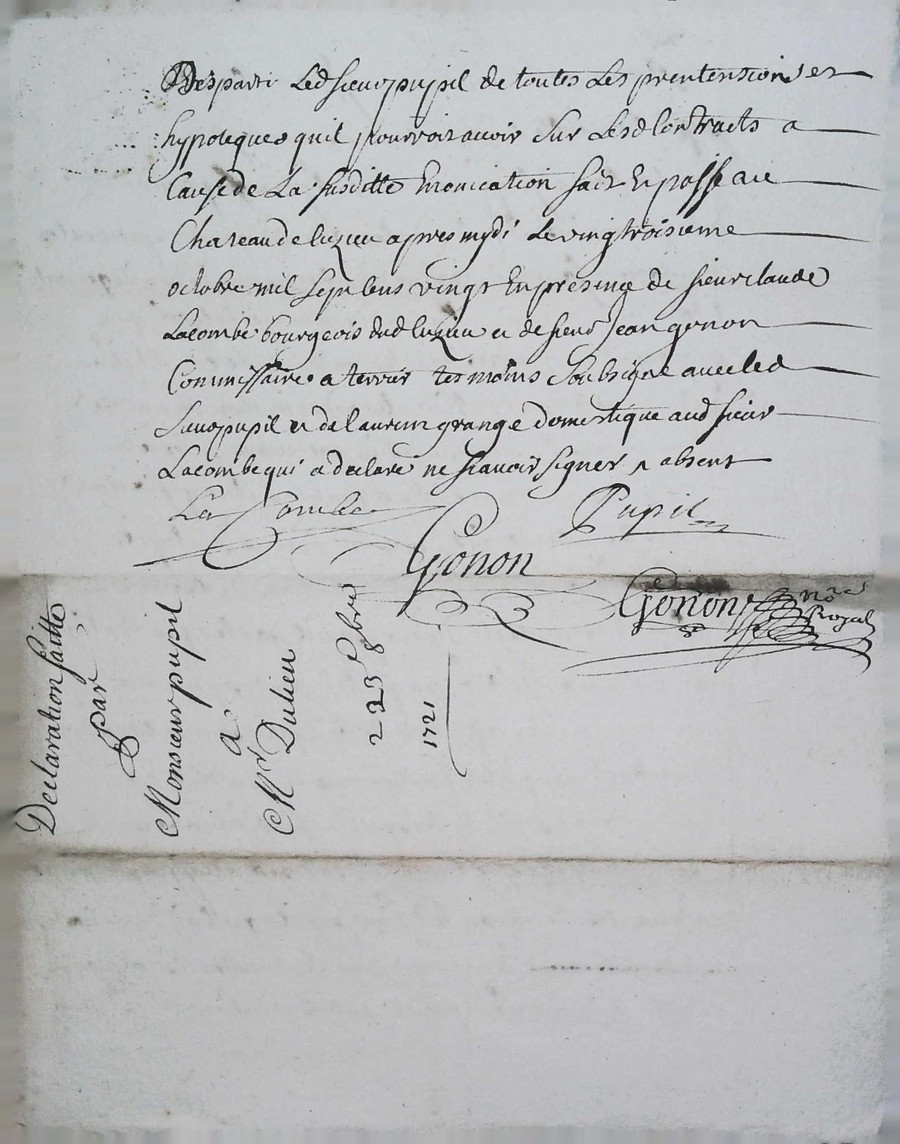 Desparti Led sieur pupil de toutes Les prentensions et
hypoteques quil pourroit avoir Sur Lesd Contracts a
Cause de La susditte fait Et passe au
Chateau de luzieu apres mydi Le vingt troisieme
octobre mil sept cens vingt En presence de sieur claude
Lacombe bourgeois dud luzieu et de sieur Jean gonon
Commissaire a terrier tesmoins Soubsigne avec led
Sieur pupil et de laurens grange domestique aud sieur
Lacombe qui a declare ne scavoir signer absent
La Combe
Pupil
Gonon
Gonon no.re Royal
Declaration faitte
par
Monsieur pupil
a
Mr Dulieu
23 8bre
1721